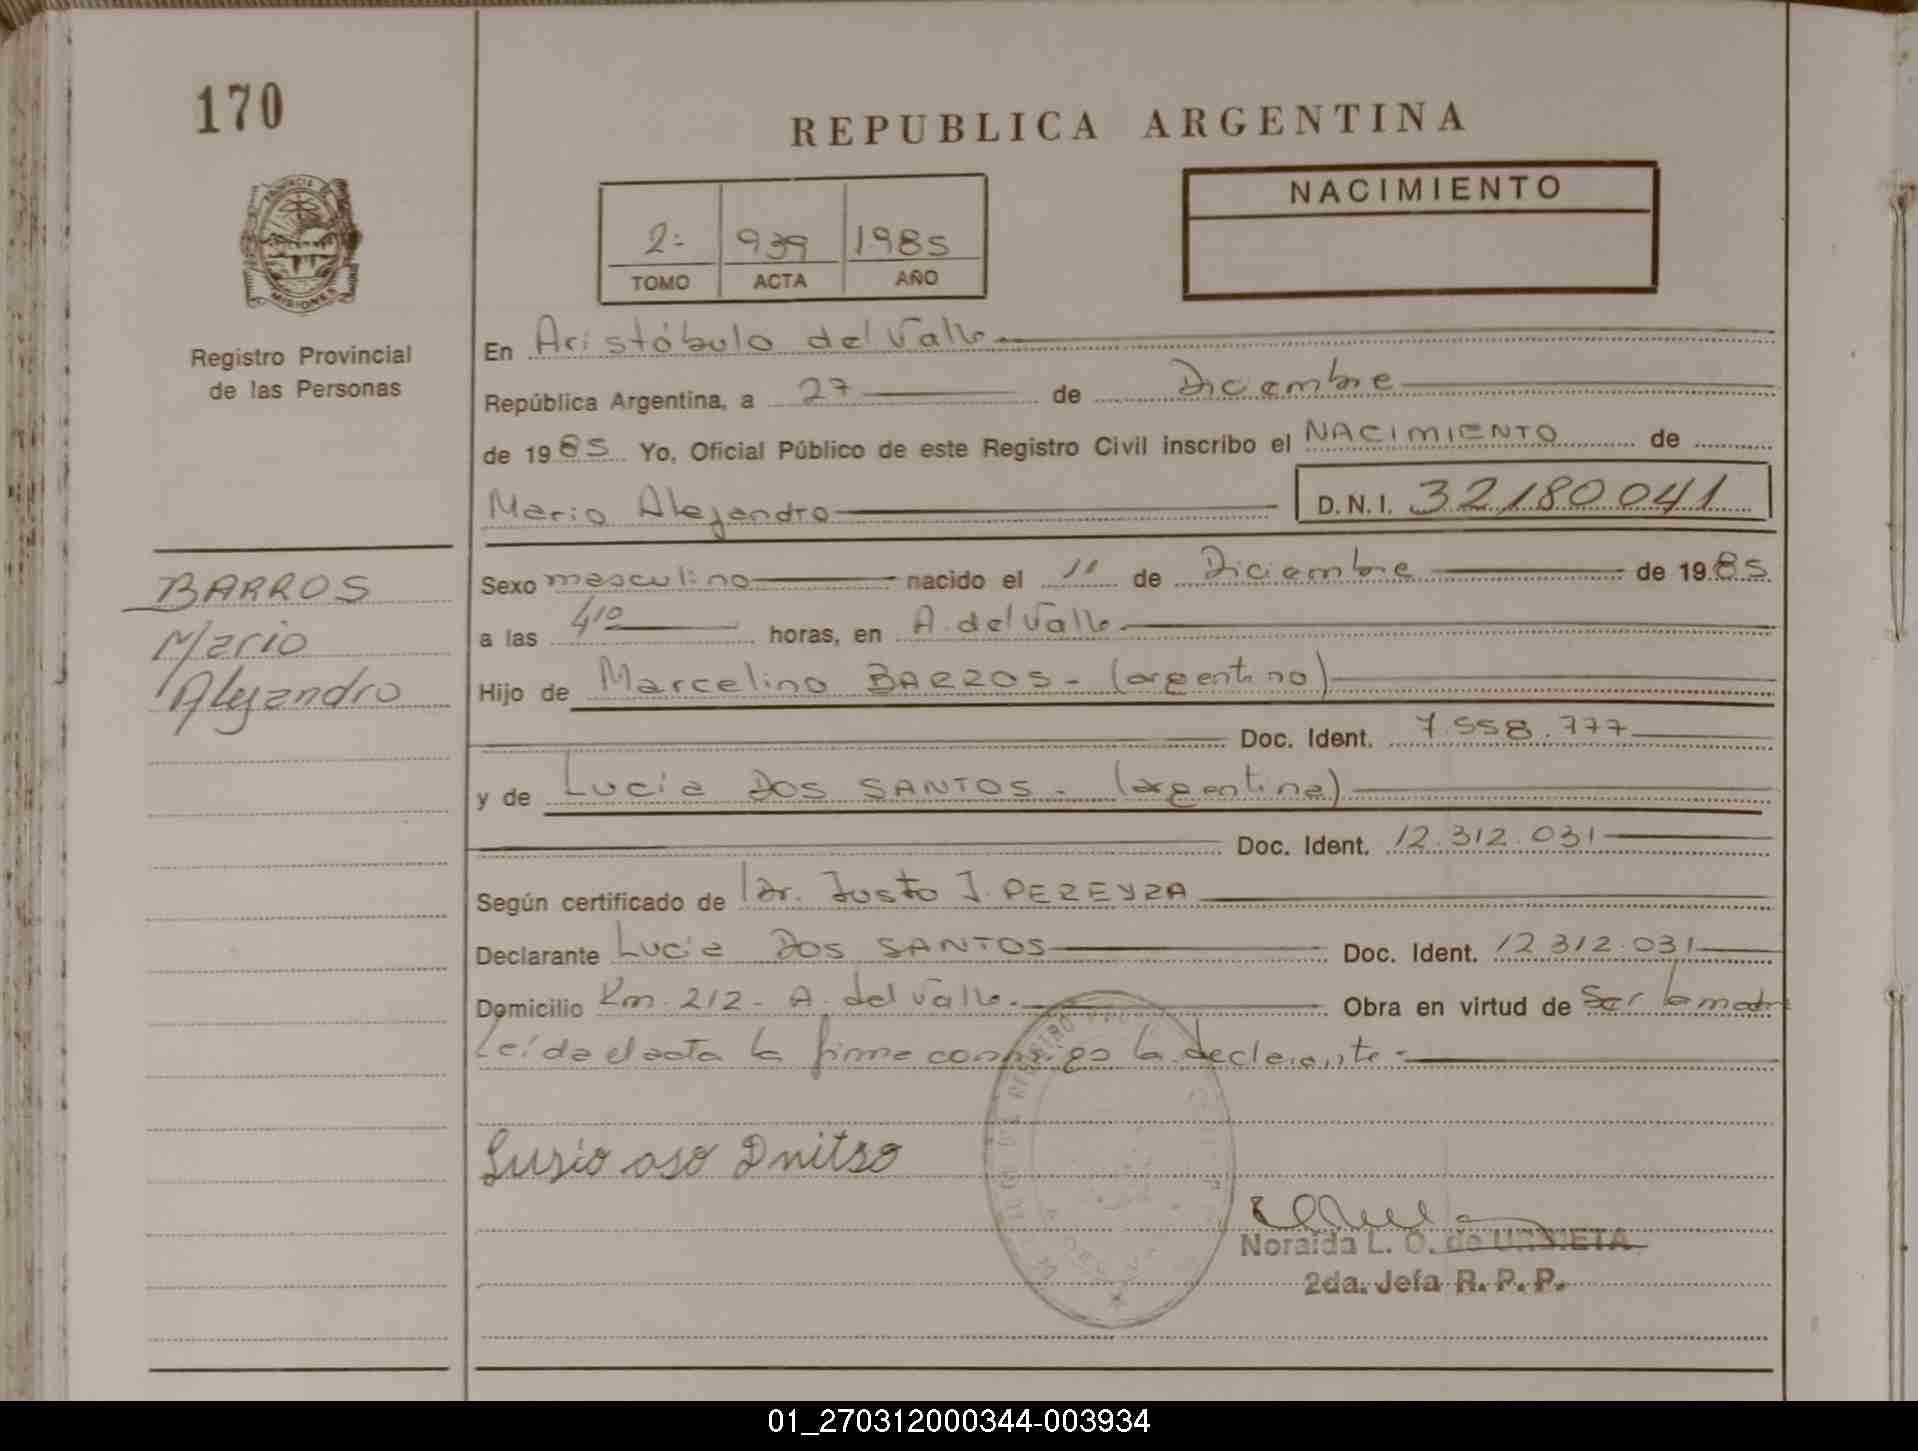 170
REPUBLICA ARGENTINA
PROVINCIA DE
MISIONES
NACIMIENTO
2= 939 1985
TOMO ACTA AÑO
Registro Provincial
de las Personas
En Aristóbulo del Valle
República Argentina, a 27 de Diciembre
de 1985 Yo, Oficial Público de este Registro Civil inscribo el NACIMIENTO de
Mario Alejandro D.N.I. 32180041
BARROS
Mario
Alejandro
Sexo masculino nacido el 11 de Diciembre de 1985
a las 410 horas, en A. del Valle
Hijo de Marcelino BARROS - (argentino)
Doc. Ident. 7.558.777
y de Lucia DOS SANTOS - (argentina)
Doc. Ident. 12.312.031
Según certificado de Dr. Justo J. PEREYRA
Declarante Lucia DOS SANTOS Doc. Ident. 12.312.031
Domicilio Km. 212 - A. del Valle. Obra en virtud de Ser la madre
Leída el acta la firma conmigo la declarante-
2da. Jefa R. P. P.
Noraida L. O. de
01_270312000344-003934